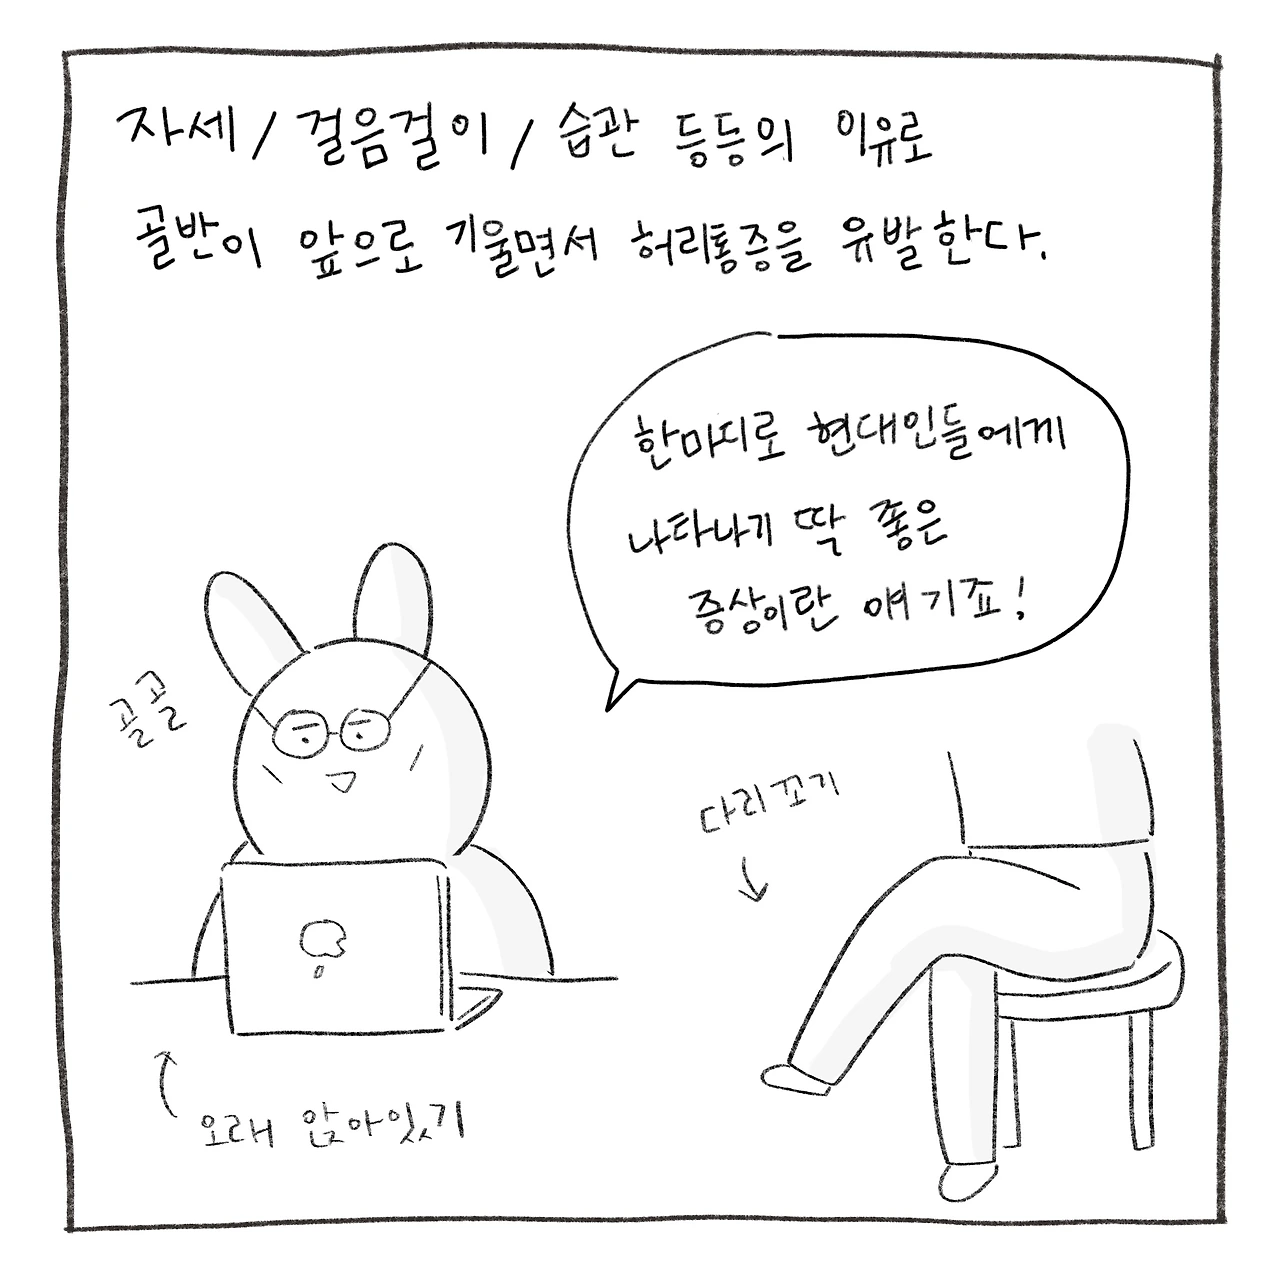 자세 / 걸음걸이 / 습관 등등의 이유로
골반이 앞으로 기울면서 허리통증을 유발한다.
한마디로 현대인들에게
나타나기 딱 좋은
증상이란 얘기죠!
골골
다리꼬기
오래 앉아있기